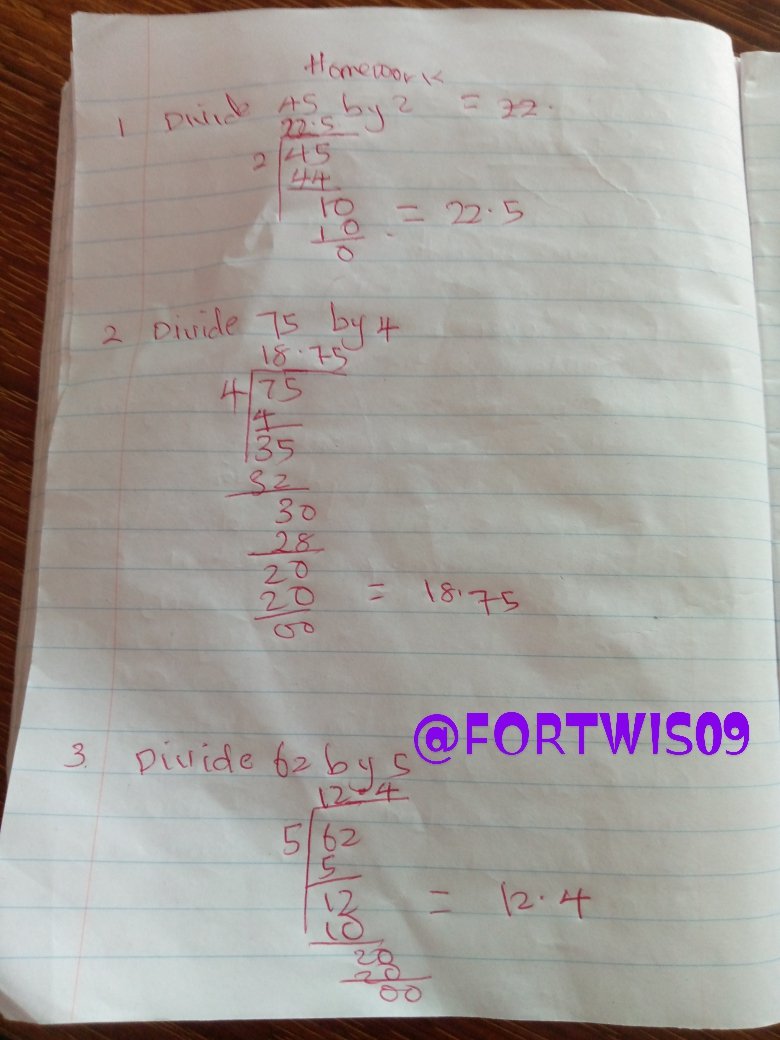 Homework
1 Divide 45 by 2 = 22.
22.5
2 45
44
10 = 22.5
10
0
2 Divide 75 by 4
18.75
4 75
4
35
32
30
28
20
20 = 18.75
00
@FORTWIS09
3. Divide 62 by 5
12.4
5 62
5
12 = 12.4
10
20
20
00